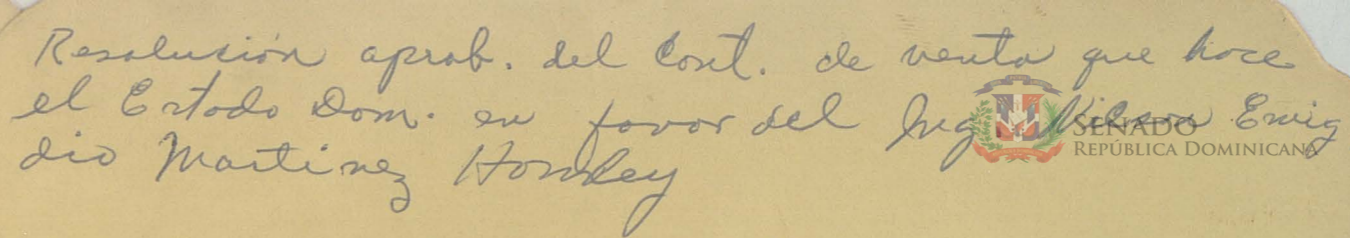 Resolución aprob. del Cont. de venta que hace
el Estado Dom. en favor del Ing. Nilson Emig
dio Martinez
SENADO
REPÚBLICA DOMINICANA